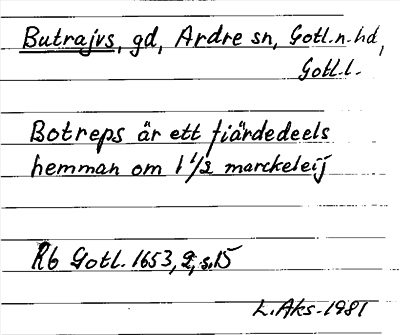 Butrajvs, gd, Ardre sn, Gotl.n.hd,
Gotl.l.
Botreps är ett fiärdedeels
hemman om 1 1/2 marckeleij
Rb Gotl. 1653, 2, s. 15
L. Aks. 1981